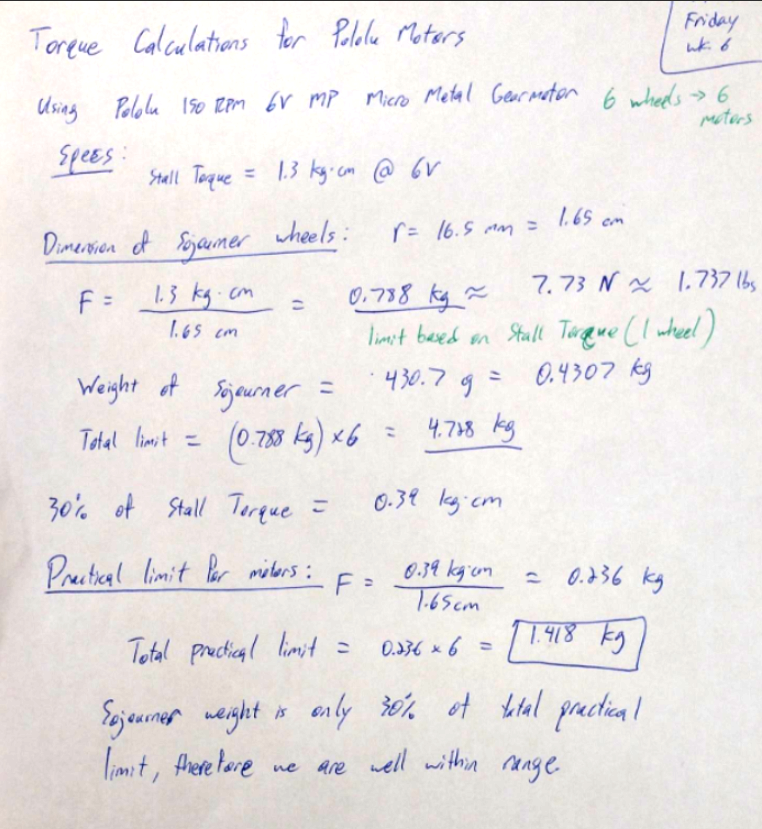 Torque Calculations for Pololu Motors
Friday
wk. 6
Using Pololu 150 RPM 6V MP Micro Metal Gearmotor 6 wheels → 6
motors
Specs:
Stall Toque = 1.3 kg·cm @ 6V
Dimension of Sojourner wheels: r = 16.5 mm = 1.65 cm
F = 1.3 kg·cm / 1.65 cm = 0.788 kg ≈ 7.73 N ≈ 1.737 lbs
limit based on Stall Torque (1 wheel)
Weight of Sojourner = 430.7 g = 0.4307 kg
Total limit = (0.788 kg) × 6 = 4.728 kg
30% of Stall Torque = 0.39 kg·cm
Practical limit for motors: F = 0.39 kg·cm / 1.65 cm = 0.236 kg
Total practical limit = 0.236 × 6 = 1.418 kg
Sojourner weight is only 30% of total practical
limit, therefore we are well within range.